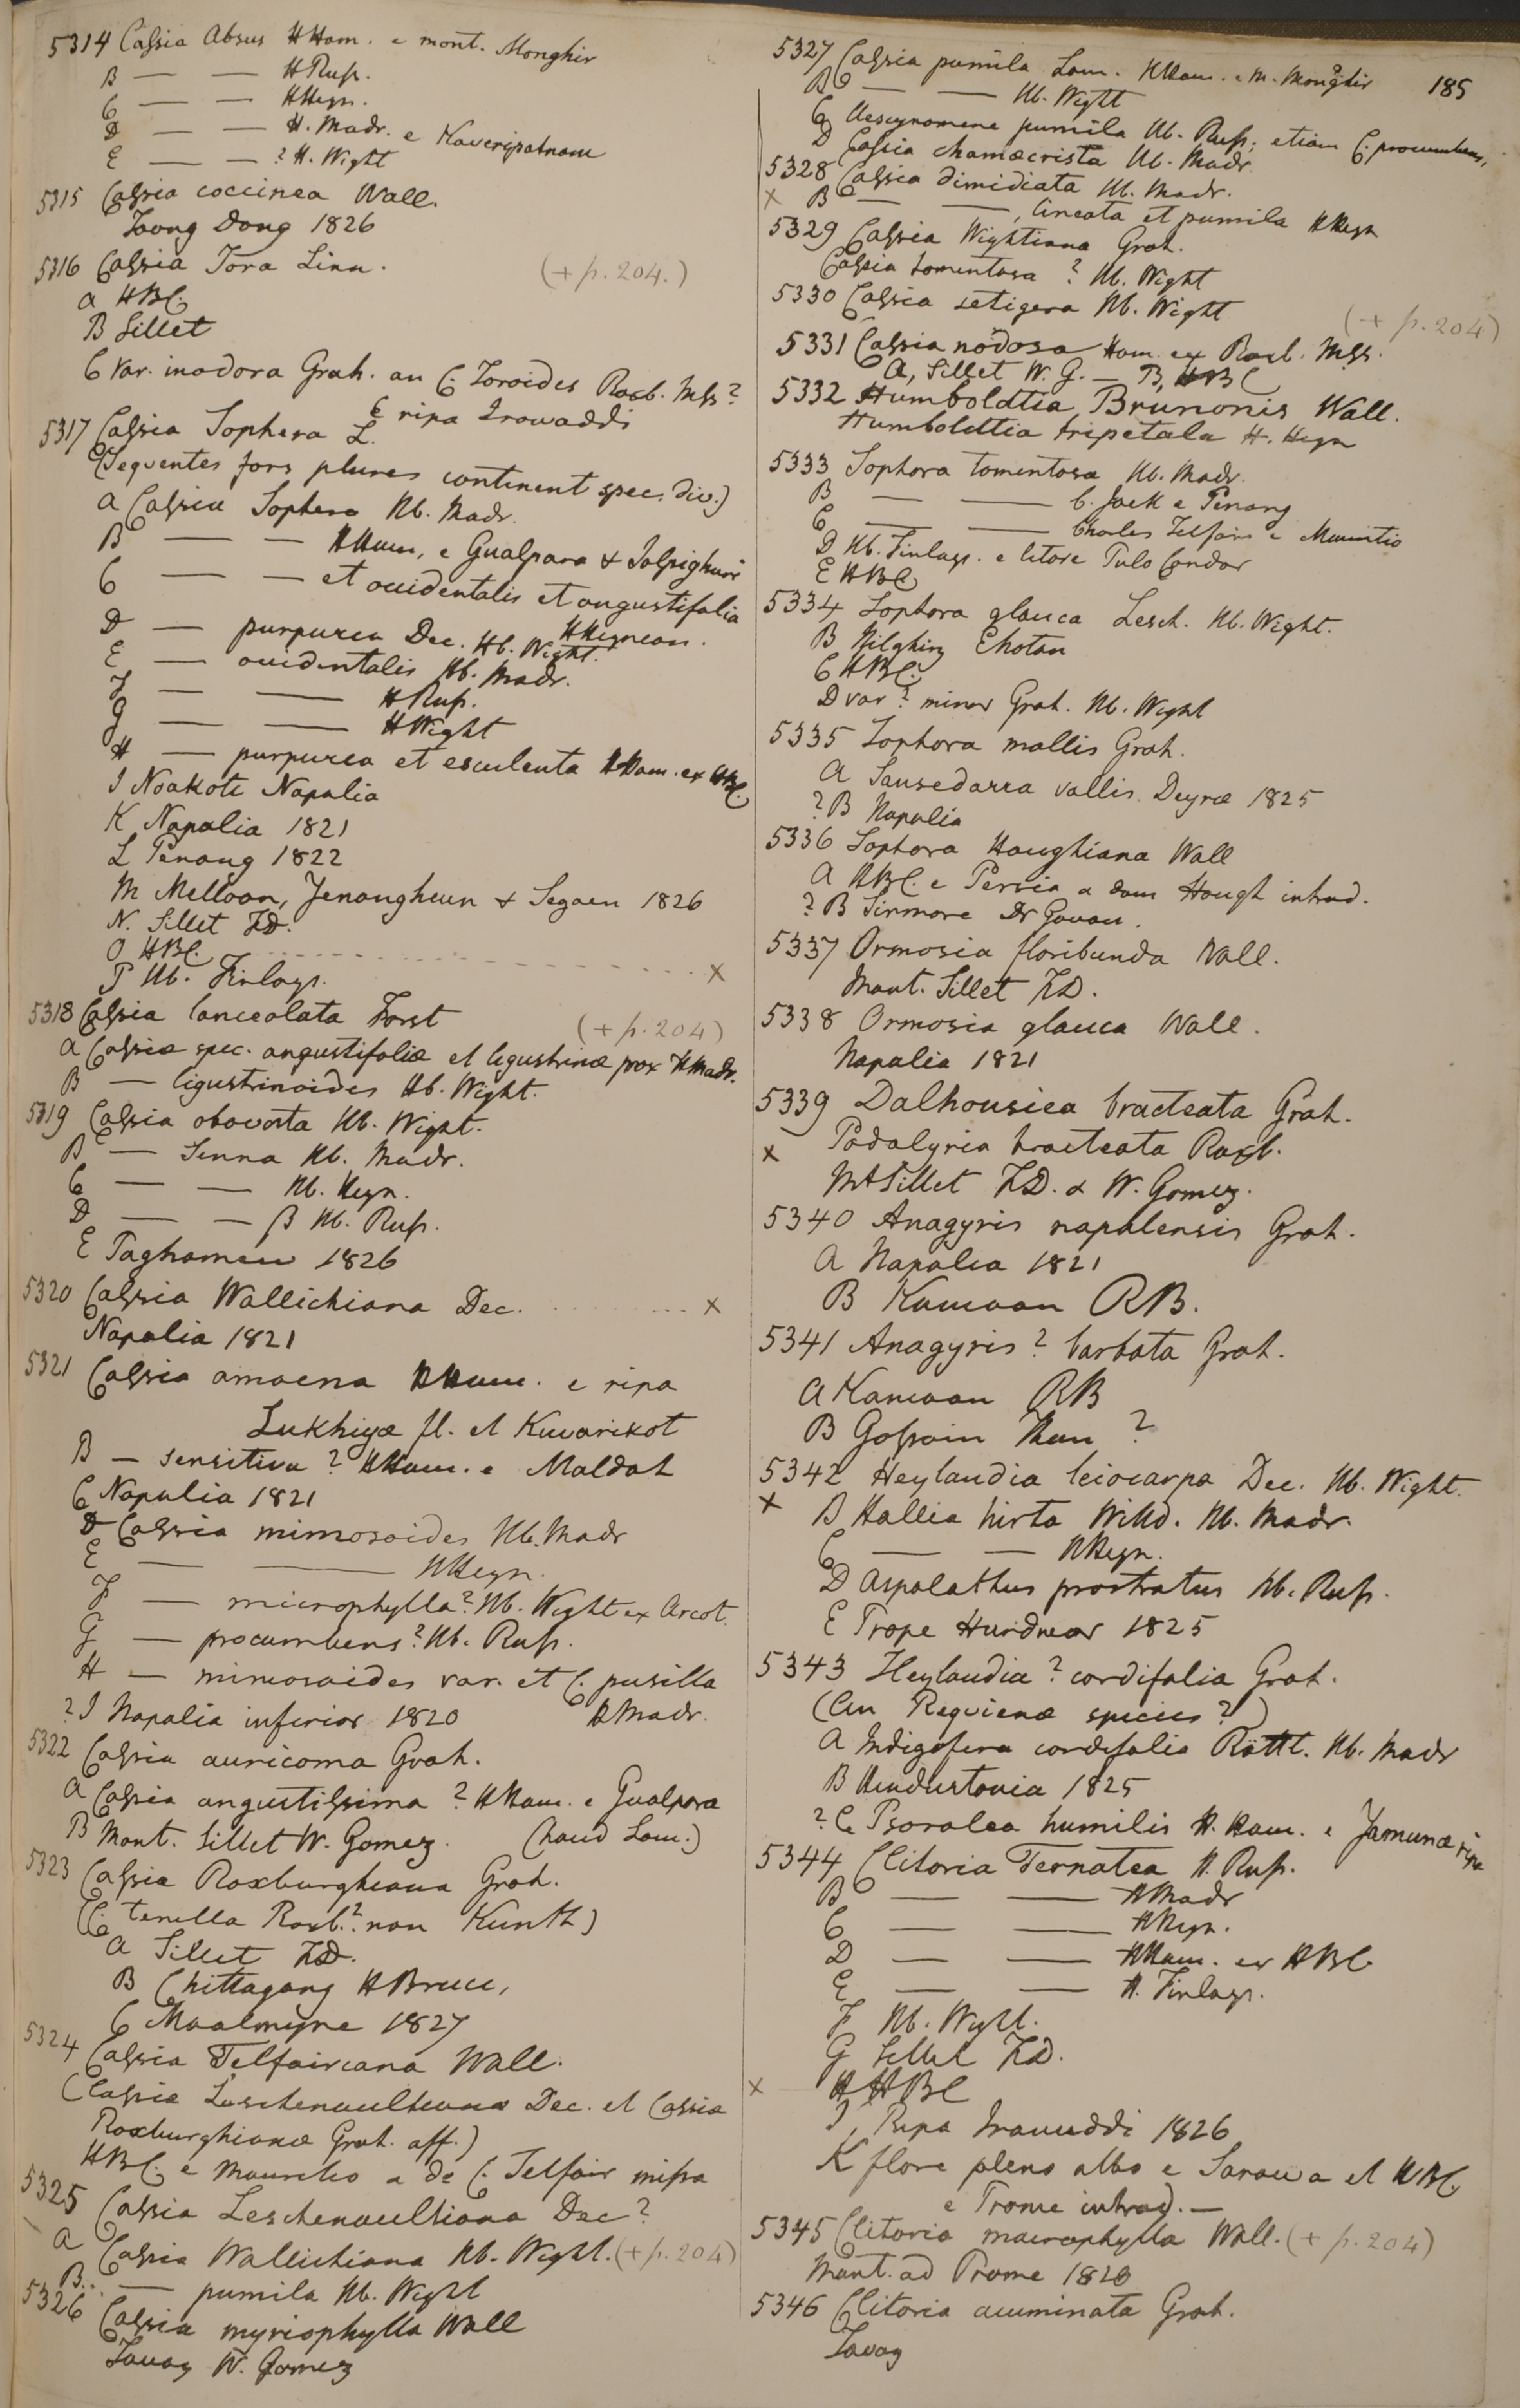 5314 Cassia Absus HHam. e mont. Monghir
B — — HRuss.
C — — HHeyn.
D — — H. Madr. e Kaveripatnam
E — — ? H. Wight
5315 Cassia coccinea Wall.
Taong Dong 1826
5316 Cassia Tora Linn. (+ p. 204.)
a HBC.
B Sillet
C Var. inodora Grah. an C. Toroides Roxb. Mss?
E ripa Irawaddi
5317 Cassia Sophera L.
(Sequentes fors plures continent spec. div.)
a Cassia Sophera Hb. Madr.
B — — HHam. e Gualpara & Jolpighuri
C — — et occidentalis et angustifolia
HHeynean.
D — purpurea Dec. Hb. Wight.
E — occidentalis Hb. Madr.
F — — HRuss.
G — — HWight
H — purpurea et esculenta HHam. ex HBC.
I Noakote Napalia
K Napalia 1821
L Penang 1822
M Melloon, Jenangheun & Segaen 1826
N. Sillet FD.
O HBC.
P Hb. Finlays. x
5318 Cassia lanceolata Forst (+ p. 204)
a Cassiæ spec. angustifoliæ et ligustrinæ prox HMadr.
B — ligustrinoides Hb. Wight.
5319 Cassia obovata Hb. Wight.
B — Senna Hb. Madr.
C — — Hb. Heyn.
D — — β Hb. Russ.
E Paghamew 1826
5320 Cassia Wallichiana Dec. x
Napalia 1821
5321 Cassia amoena HHam. e ripa
Lukhiyæ fl. et Kuvarikot
B — sensitiva ? HHam. e Maldah
C Napalia 1821
D Cassia mimosoides Hb. Madr
E — — HHeyn.
F — microphylla? Hb. Wight ex Arcot.
G — procumbens? Hb. Russ.
H — mimosoides var. et C. pusilla
HMadr.
? I Napalia inferior 1820
5322 Cassia auricoma Grah.
a Cassia angustissima ? HHam. e Gualpara
(haud Lam.)
B Mont. Sillet W. Gomez.
5323 Cassia Roxburghiana Grah.
(C. tenella Roxb.? non Kunth)
a Sillet FD.
B Chittagong HBruce,
C Moalmyne 1827
5324 Cassia Telfairiana Wall.
(Cassiæ Leschenaultianæ Dec. et Cassiæ
Roxburghianæ Grah. aff.)
HBC. e Mauritio a de C. Telfair missa
5325 Cassia Leschenaultiana Dec?
a Cassia Wallichiana Hb. Wight. (+ p. 204)
B.. — pumila Hb. Wight
5326 Cassia myriophylla Wall
Tavoy W. Gomez
185
5327 Cassia pumila Lam. HHam. e M. Monghir
B — — Hb. Wight
C Aescynomene pumila Hb. Russ; etiam C. procumbens,
D Cassia chamæcrista Hb. Madr.
5328 Cassia dimidiata Hb. Madr.
x B — —, lineata et pumila HHeyn
5329 Cassia Wightiana Grah.
Cassia tomentosa ? Hb. Wight
5330 Cassia setigera Hb. Wight
(+ p. 204)
5331 Cassia nodosa Ham. ex Roxb. Mss.
A, Sillet W. G. — B, HBC
5332 Humboldtia Brunonis Wall.
Humboldtia tripetala H. Heyn
5333 Sophora tomentosa Hb. Madr.
B — — C. Jack e Penang
C — — Charles Telfair e Mauritio
D Hb. Finlays. e litore Pulo Condor
E HBC
5334 Sophora glauca Lesch. Hb. Wight.
B Nilghiry Ehotan
C HBC.
D var? minor Grah. Hb. Wight
5335 Sophora mollis Grah.
a Sansedarra vallis Deyræ 1825
? B Napalia
5336 Sophora Houghiana Wall
a HBC. e Persia a dom Hough introd.
? B Sirmore Dr Govan.
5337 Ormosia floribunda Wall.
Mont. Sillet FD.
5338 Ormosia glauca Wall.
Napalia 1821
5339 Dalhousiea bracteata Grah.
x Podalyria bracteata Roxb.
Mt Sillet FD. & W. Gomez.
5340 Anagyris napalensis Grah.
a Napalia 1821
B Kamaon RB.
5341 Anagyris ? barbata Grah.
a Kamaon RB
B Gossain Than ?
5342 Heylandia leiocarpa Dec. Hb. Wight.
x B Hallia hirta Willd. Hb. Madr.
C — — HHeyn.
D Aspalathus prostratus Hb. Russ.
E Prope Hurdwar 1825
5343 Heylandia ? cordifolia Grah.
(An Requienæ species ?)
a Indigofera cordifolia Rottl. Hb. Madr
B Hindustania 1825
? C Psoralea humilis H. Ham. e Jamunæ ripa
5344 Clitoria Ternatea H. Russ.
B — — HMadr
C — — HHeyn.
D — — HHam. ex HBC
E — — H. Finlays.
F Hb. Wight.
G Sillet FD.
x H HBC
I, Ripa Irawaddi 1826
K flore pleno albo e Sarawa et HBC.
e Prome introd. —
5345 Clitoria macrophylla Wall. (+ p. 204)
Mont. ad Prome 1826
5346 Clitoria acuminata Grah.
Tavoy